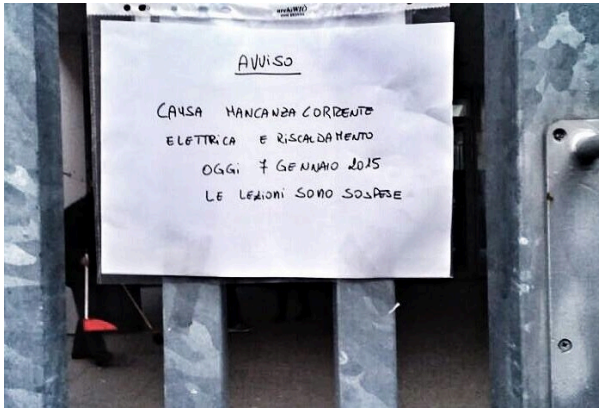 archiWIÒ
AVVISO
CAUSA MANCANZA CORRENTE
ELETTRICA E RISCALDAMENTO
OGGI 7 GENNAIO 2015
LE LEZIONI SONO SOSPESE